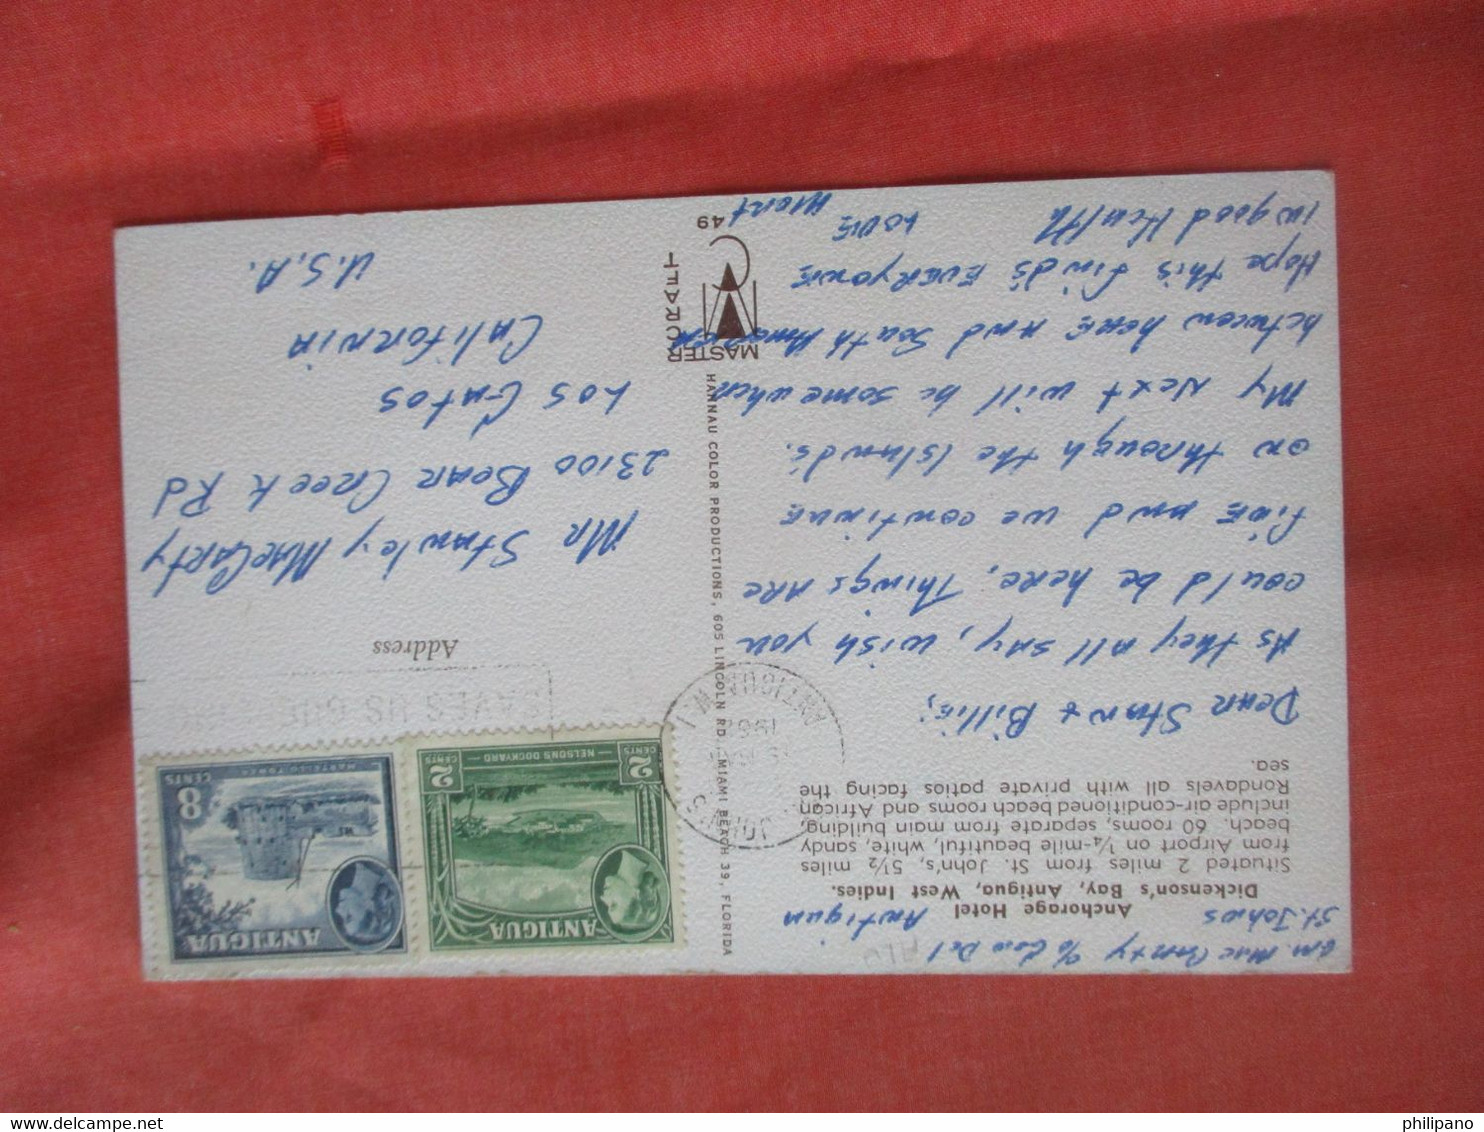 Gm MacCarty c/o Gen Del
St. Johns Antigua
Anchorage Hotel
Dickenson's Bay, Antigua, West Indies.
Situated 2 miles from St. John's, 5½ miles
from Airport on ¼-mile beautiful, white, sandy
beach. 60 rooms, separate from main building,
include air-conditioned beach rooms and African
Rondavels all with private patios facing the
sea.
Dear Stan & Billie,
As they all say, wish you
could be here, Things are
fine and we continue
on through the Islands.
My Next will be somewhere
between here and South America
Hope this finds EVERYONE
in good Health LOVE
HANNAU COLOR PRODUCTIONS, 605 LINCOLN RD., MIAMI BEACH 39, FLORIDA
MASTER
CRAFT
49
ANTIGUA
2 CENTS
NELSON'S DOCKYARD
2 CENTS
ANTIGUA
8 CENTS
MARTELLO TOWER
ST. JOHN'S
1962
ANTIGUA W.I.
Address
Mr Stanley MacCarty
23100 Bear Creek Rd
Los Gatos
California
U.S.A.
philipano